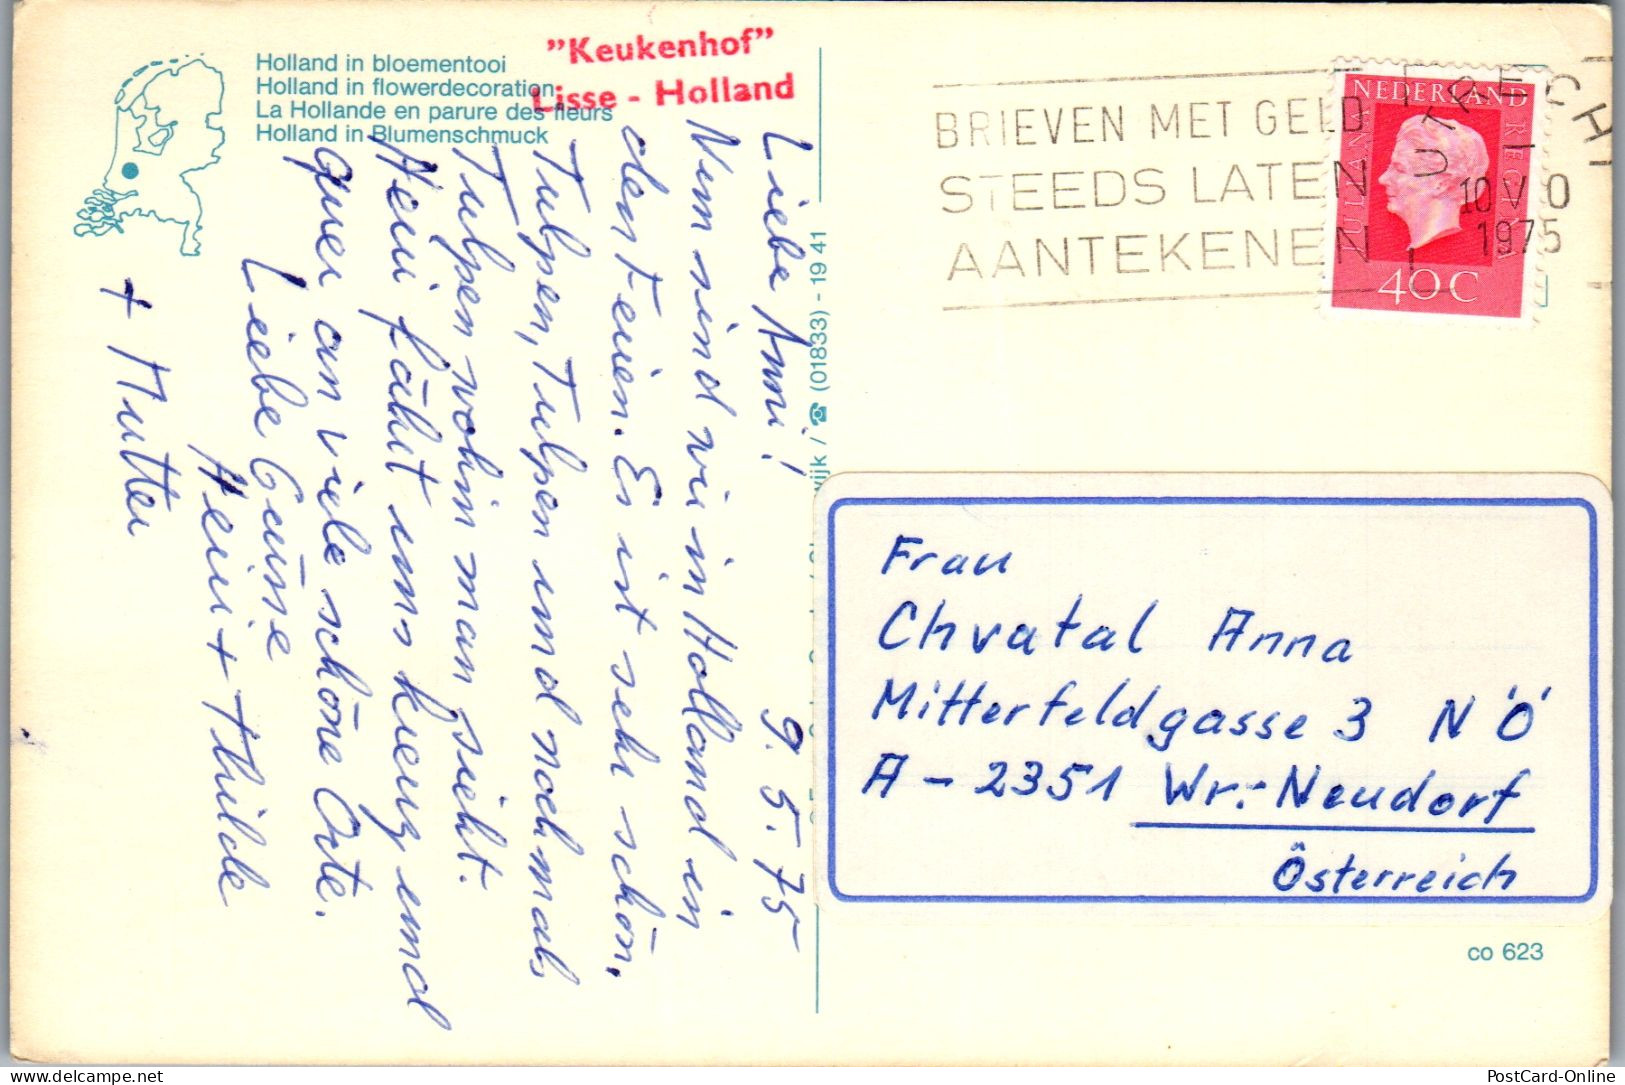 Holland in bloementooi
Holland in flowerdecoration
La Hollande en parure des fleurs
Holland in Blumenschmuck
"Keukenhof"
Lisse - Holland
Liebe Anni! 9.5.75
Nun sind wir in Holland in
den Feien. Es ist sehr schön.
Tulpen, Tulpen und noch mal
Tulpen wohin man sieht.
Heini fährt uns kreuz und
quer an viele schöne Orte.
Liebe Grüsse
Heini + Thilde
+ Mutter
wijk / ☎ (01833) - 19 41
BRIEVEN MET GELD
STEEDS LATEN
AANTEKENEN !
UTRECHT
10 V 0
1975
NEDERLAND
JULIANA REGINA
40 C
Frau
Chvatal Anna
Mitterfeldgasse 3 NÖ
A - 2351 Wr.-Neudorf
Österreich
co 623
PostCard-Online
www.delcampe.net